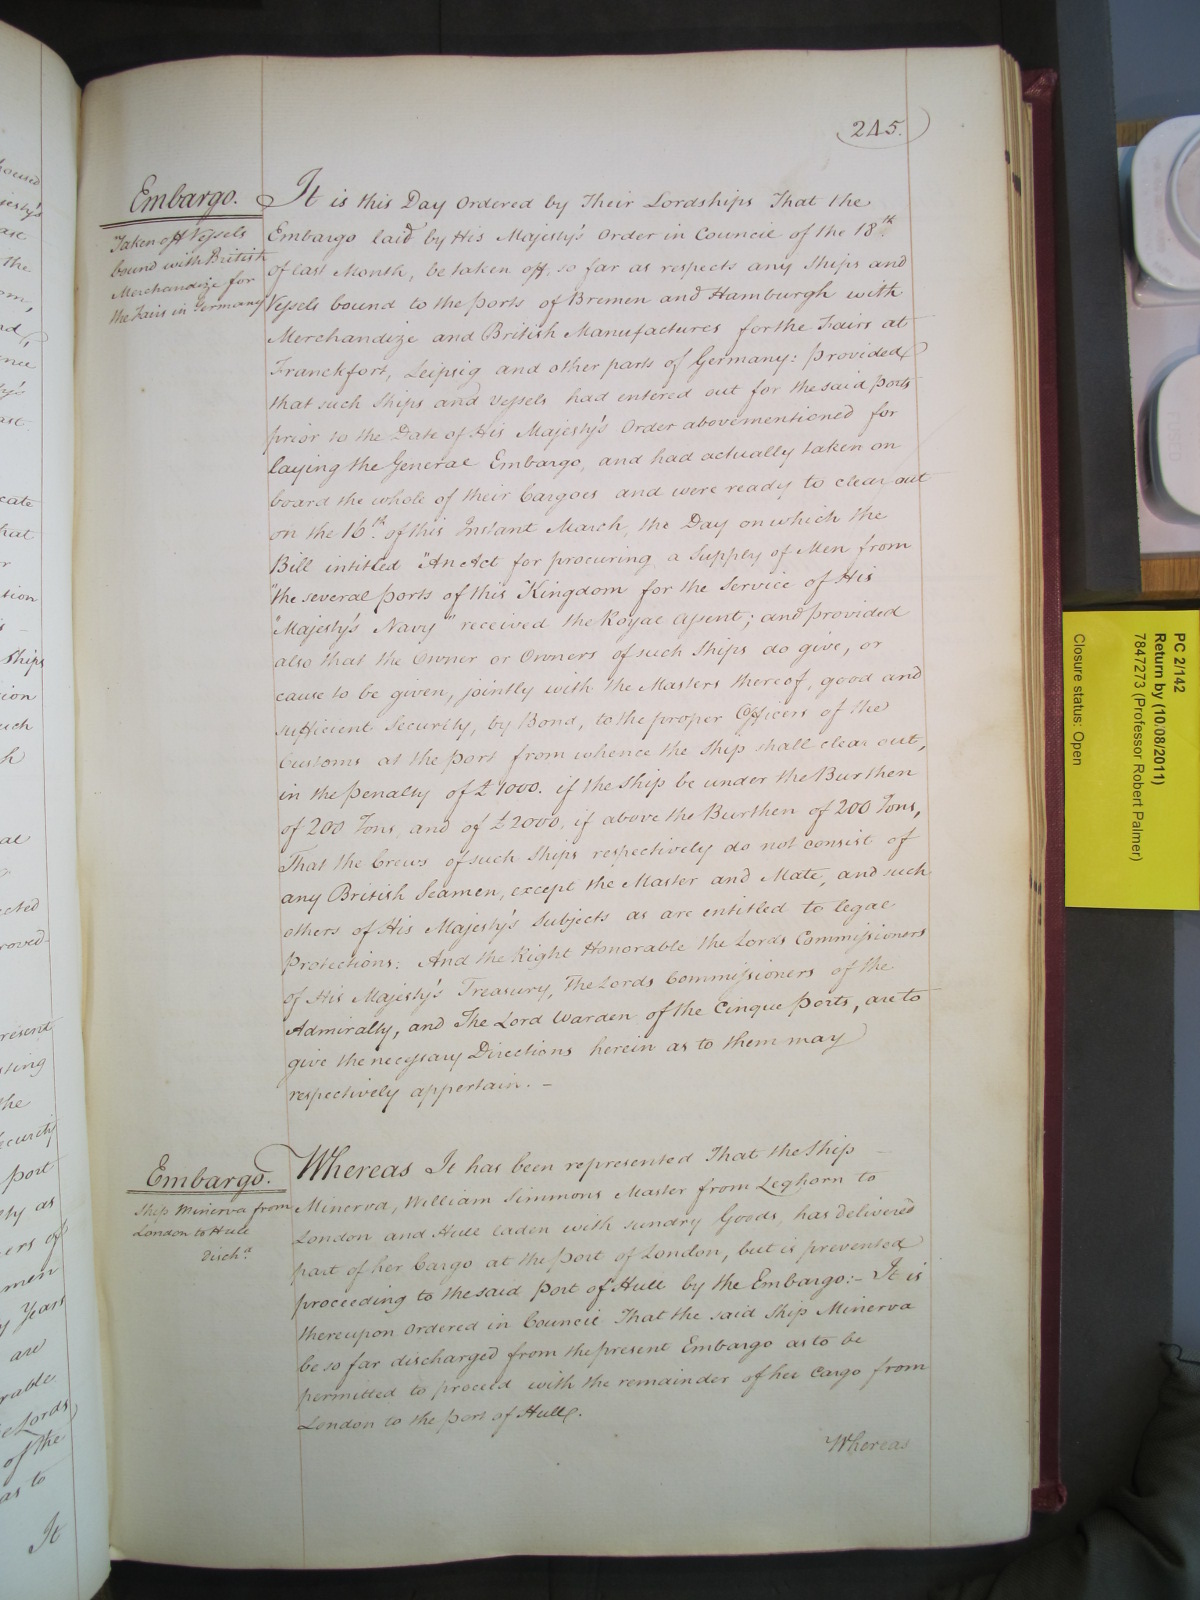 245.
Embargo.
Taken off Vessels
bound with British
Merchandize for
the Fairs in Germany
It is this Day Ordered by Their Lordships That the
Embargo laid by His Majesty's Order in Council of the 18th.
of last Month, be taken off, so far as respects any Ships and
Vessels bound to the Ports of Bremen and Hamburgh with
Merchandize and British Manufactures for the Fairs at
Franckfort, Leipsig and other parts of Germany: Provided
that such Ships and Vessels had entered out for the said Ports
prior to the Date of His Majesty's Order abovementioned for
laying the General Embargo, and had actually taken on
board the whole of their Cargoes and were ready to clear out
on the 16th. of this Instant March, the Day on which the
Bill intitled "An Act for procuring a Supply of Men from
"the several Ports of this Kingdom for the Service of His
"Majesty's Navy" received the Royal Assent; and provided
also that the Owner or Owners of such Ships do give, or
cause to be given, jointly with the Masters thereof, good and
sufficient Security, by Bond, to the proper Officers of the
Customs at the Port from whence the Ship shall clear out,
in the Penalty of £1000. if the Ship be under the Burthen
of 200 Tons, and of £2000, if above the Burthen of 200 Tons,
That the Crews of such Ships respectively do not consist of
any British Seamen, except the Master and Mate, and such
others of His Majesty's Subjects as are entitled to legal
Protections: And the Right Honorable the Lords Commissioners
of His Majesty's Treasury, The Lords Commissioners of the
Admiralty, and The Lord Warden of the Cinque Ports, are to
give the necessary Directions herein as to them may
respectively appertain. -
Embargo.
Ship Minerva from
London to Hull
Disch.d
Whereas It has been represented That the Ship
Minerva, William Simmons Master from Leghorn to
London and Hull laden with sundry Goods, has delivered
part of her Cargo at the Port of London, but is prevented
proceeding to the said Port of Hull by the Embargo:- It is
thereupon Ordered in Council That the said Ship Minerva
be so far discharged from the present Embargo as to be
permitted to proceed with the remainder of her Cargo from
London to the Port of Hull.
Whereas
PC 2/142
Return by (10/08/2011)
7847273 (Professor Robert Palmer)
Closure status: Open